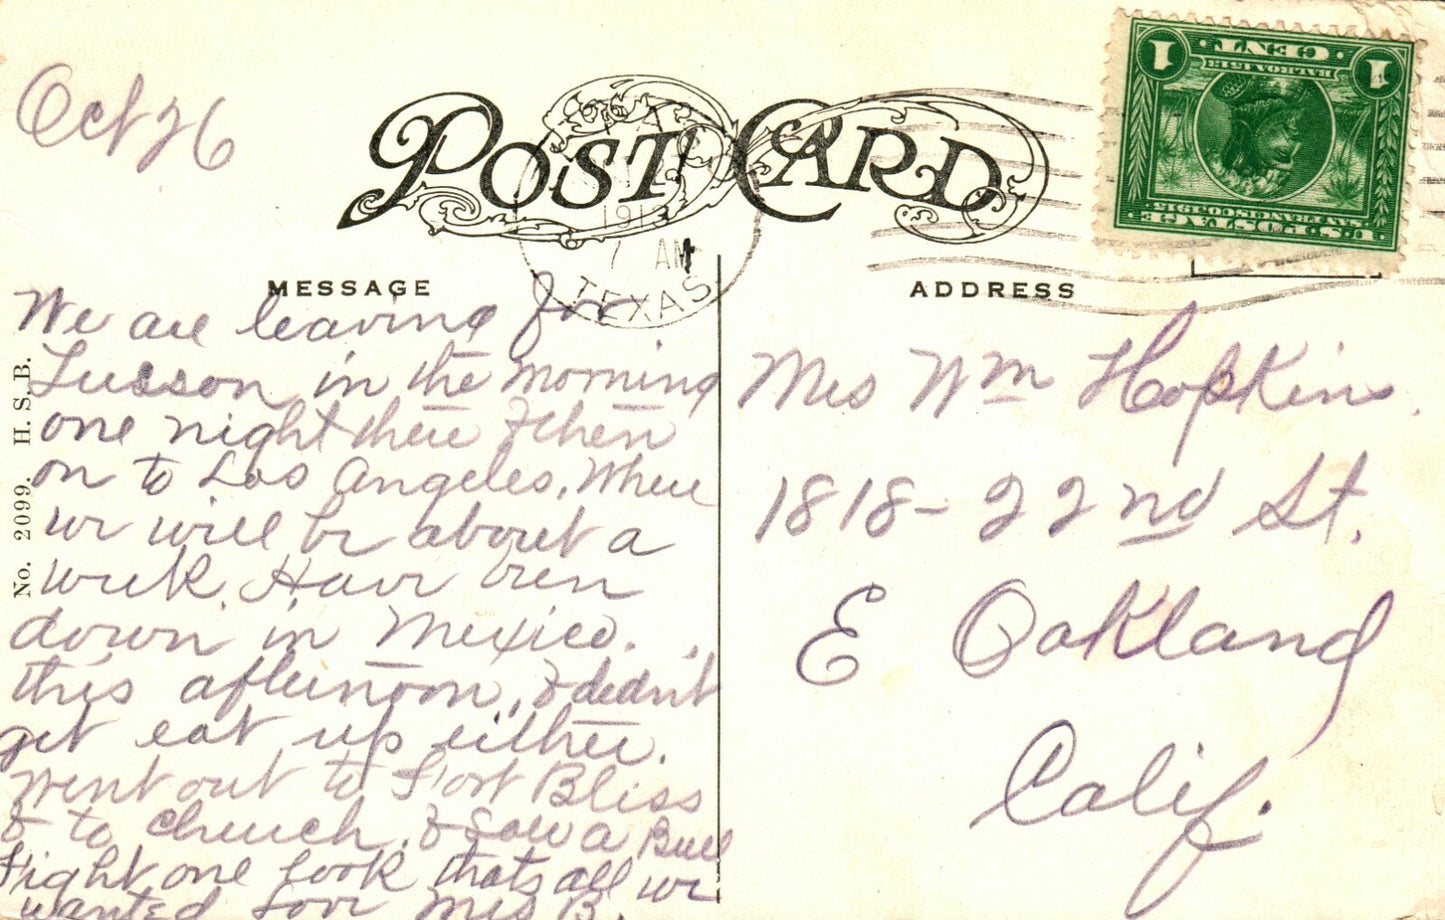 Oct 26
POST CARD
1913
7 AM
TEXAS
1 CENT 1
BALBOA 1513
SAN FRANCISCO 1915
U.S. POSTAGE
MESSAGE
ADDRESS
No. 2099. H. S. B.
We are leaving for
Tusson in the morning
one night there & then
on to Los Angeles. Where
we will be about a
week. Have been
down in Mexico.
this afternoon, & didn't
get eat up either.
Went out to Fort Bliss
& to church, & saw a Bull
Fight one look thats all we
wanted Love Mrs B.
Mrs Wm Hopkins.
1818-22nd St.
E Oakland
Calif.